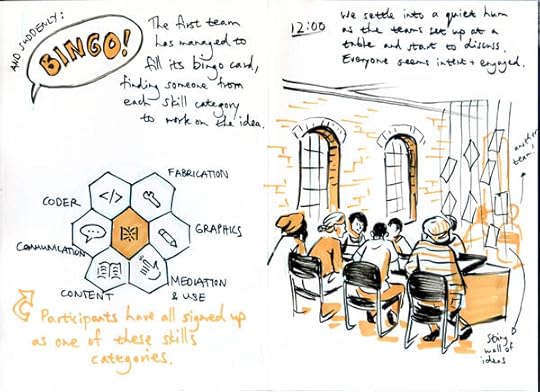 AND SUDDENLY:
BINGO!
The first team
has managed to
fill its bingo card,
finding someone from
each skill category
to work on the idea.
FABRICATION
CODER
</>
GRAPHICS
COMMUNICATION
MEDIATION
& USE
CONTENT
Participants have all signed up
as one of these skills
categories.
12:00
We settle into a quiet hum
as the teams set up at a
table and start to discuss.
Everyone seems intent + engaged.
another
team!
String
wall of
ideas